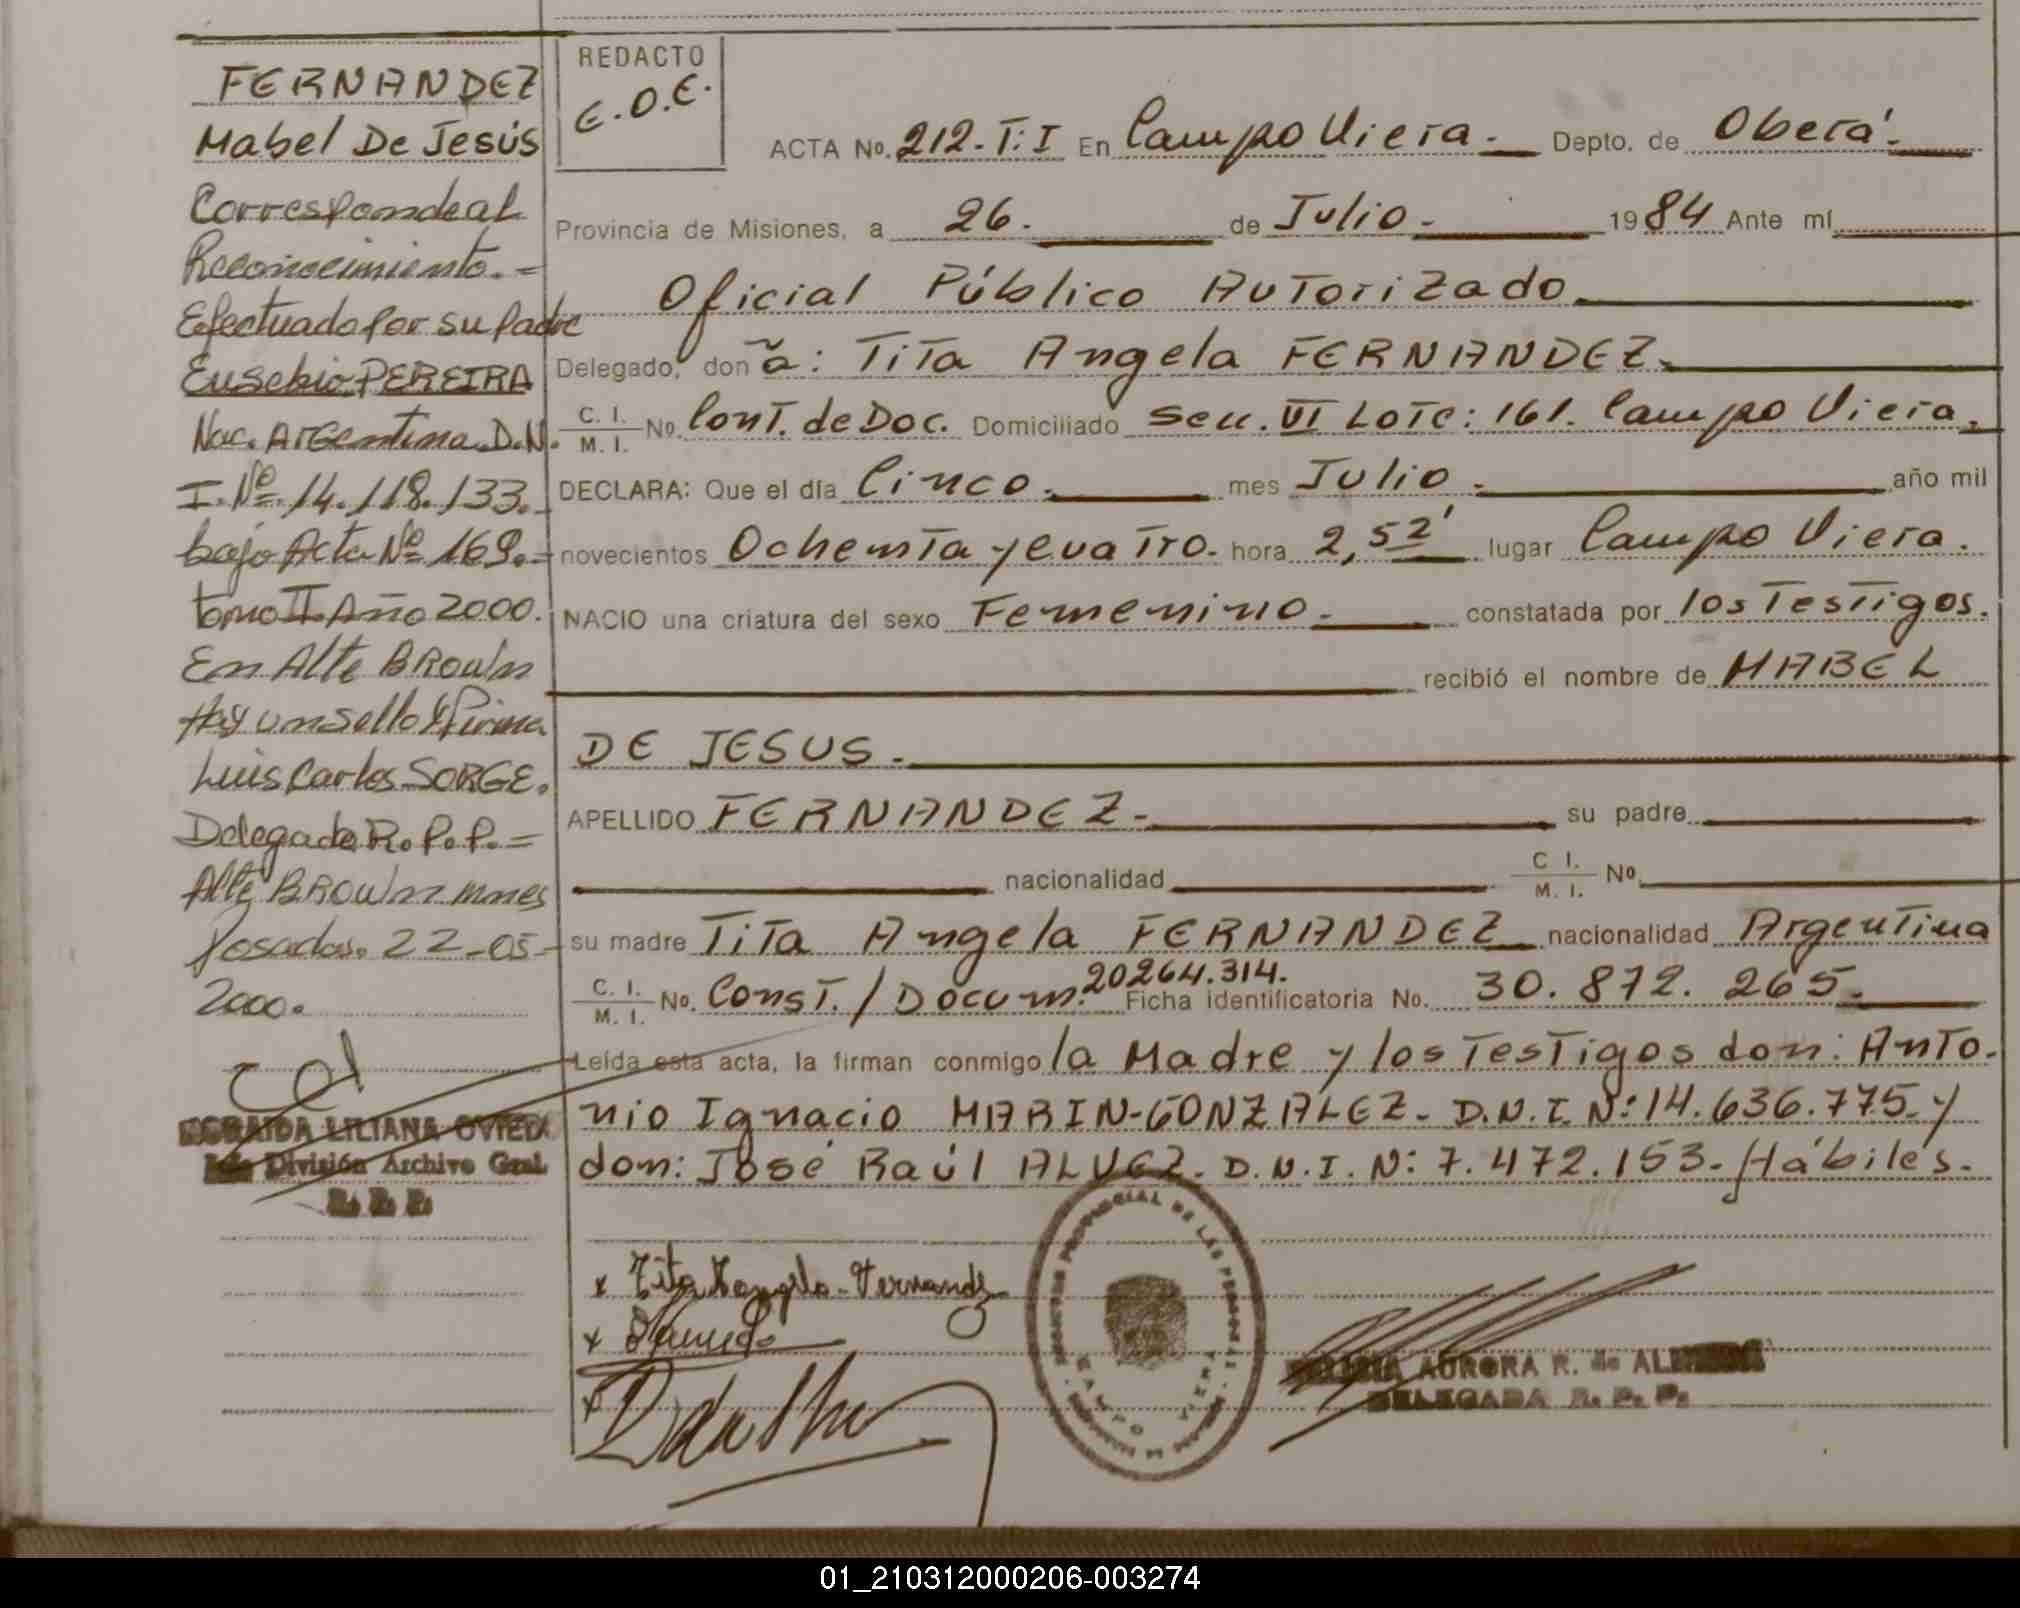 FERNANDEZ
Mabel De Jesús
Corresponde al
Reconocimiento.=
Efectuado por su padre
Eusebio PEREIRA
Nac. Argentina D.N.
I. Nº 14.118.133.
bajo Acta Nº 169.=
tomo II Año 2000.
En Alte BROWN
Hay un sello y firma
Luis Carlos SORGE.
Delegado R.P.P.=
Alte BROWN Mnes
Posadas. 22-05-
2000.
LILIANA OVIEDO
División Archivo Gral.
R. P. P.
REDACTO
E.O.E.
ACTA No. 212-T:I En Campo Viera.- Depto. de Oberá.-
Provincia de Misiones, a 26.- de Julio.- 1984 Ante mí
Oficial Público Autorizado
Delegado, don ã: Tita Angela FERNANDEZ.
C. I. / M. I. No. Cont. de Doc. Domiciliado Secc. VI Lote: 161. Campo Viera.
DECLARA: Que el día Cinco.- mes Julio.- año mil
novecientos Ochenta y cuatro. hora 2,52' lugar Campo Viera.
NACIO una criatura del sexo Femenino.- constatada por los Testigos.
recibió el nombre de MABEL
DE JESUS.-
APELLIDO FERNANDEZ.- su padre
nacionalidad C I. / M. I. No.
su madre Tita Angela FERNANDEZ nacionalidad Argentina
C. I. / M. I. No. Const./Docum. 20264.314. Ficha identificatoria No. 30.872.265.
Leída esta acta, la firman conmigo la Madre y los Testigos don: Anto-
nio Ignacio MARIN-GONZALEZ- D.N.I. Nº:14.636.775.y
don: José Raúl ALVEZ- D.N.I. N: 7.472.153- Hábiles.-
x Tita Angela Fernandez
x
x
PROVINCIAL DE LAS PERSONAS
CAMPO VIERA
AURORA R. de
DELEGADA R. P. P.
01_210312000206-003274